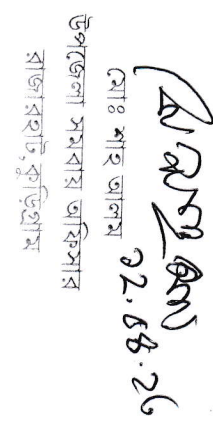 মোঃ শাহ আলম
উপজেলা সমবায় অফিসার
রাজারহাট, কুড়িগ্রাম